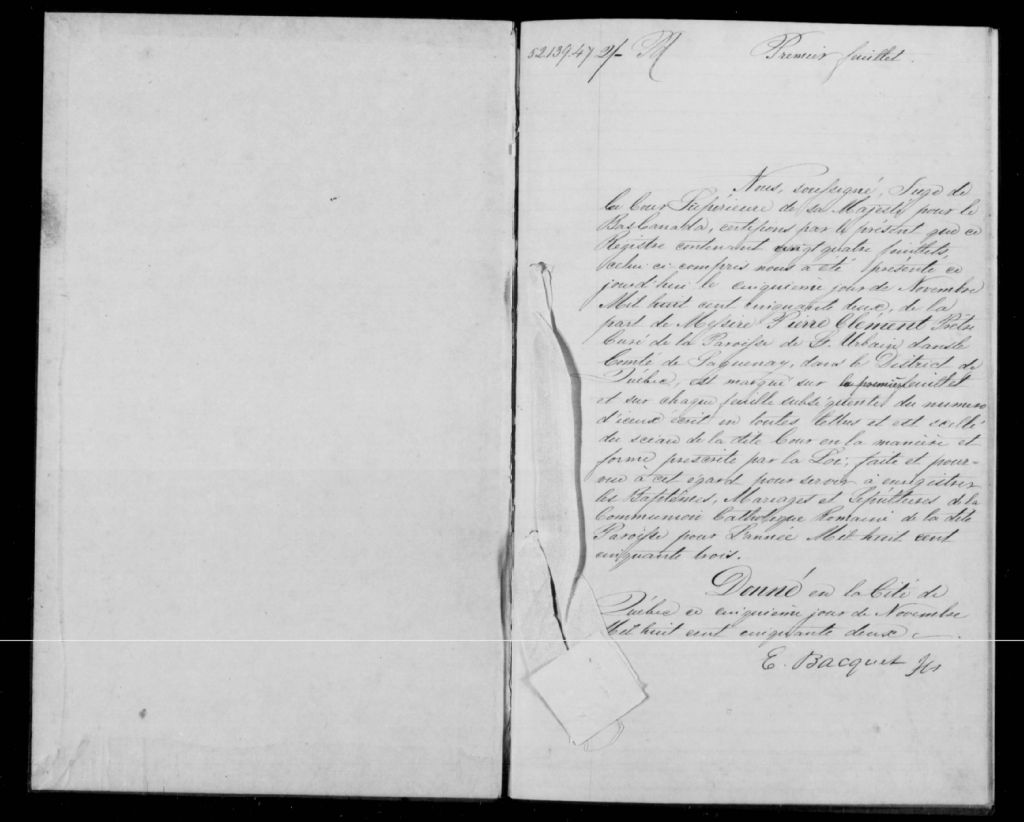 52.139.47 2/- M Premier feuillet.
Nous, soussigné, Juge de
la Cour Supérieure de sa Majesté pour le
Bas Canada, certifions par le présent que ce
Registre contenant vingt quatre feuillets,
celui ci compris nous a été présenté ce
jourd'hui le cinquieme jour de Novembre
Mil huit cent cinquante deux, de la
part de Messire Pierre Clément Prêtre
Curé de la Paroisse de St. Urbain dans le
Comté de Saguenay, dans le District de
Québec, est marqué sur le premier feuillet
et sur chaque feuille subséquente du numero
d'iceux écrit en toutes lettres et est scellé
du sceau de la dite Cour en la manière et
forme prescrite par la Loi, faite et pour-
vue à cet égard pour servir à enregistrer
les Baptêmes, Mariages et Sépultures de la
Communion Catholique Romaine de la dite
Paroisse pour L'année Mil huit cent
cinquante trois.
Donné en la Cité de
Québec ce cinquieme jour de Novembre
Mil huit cent cinquante deux.
E. Bacquet